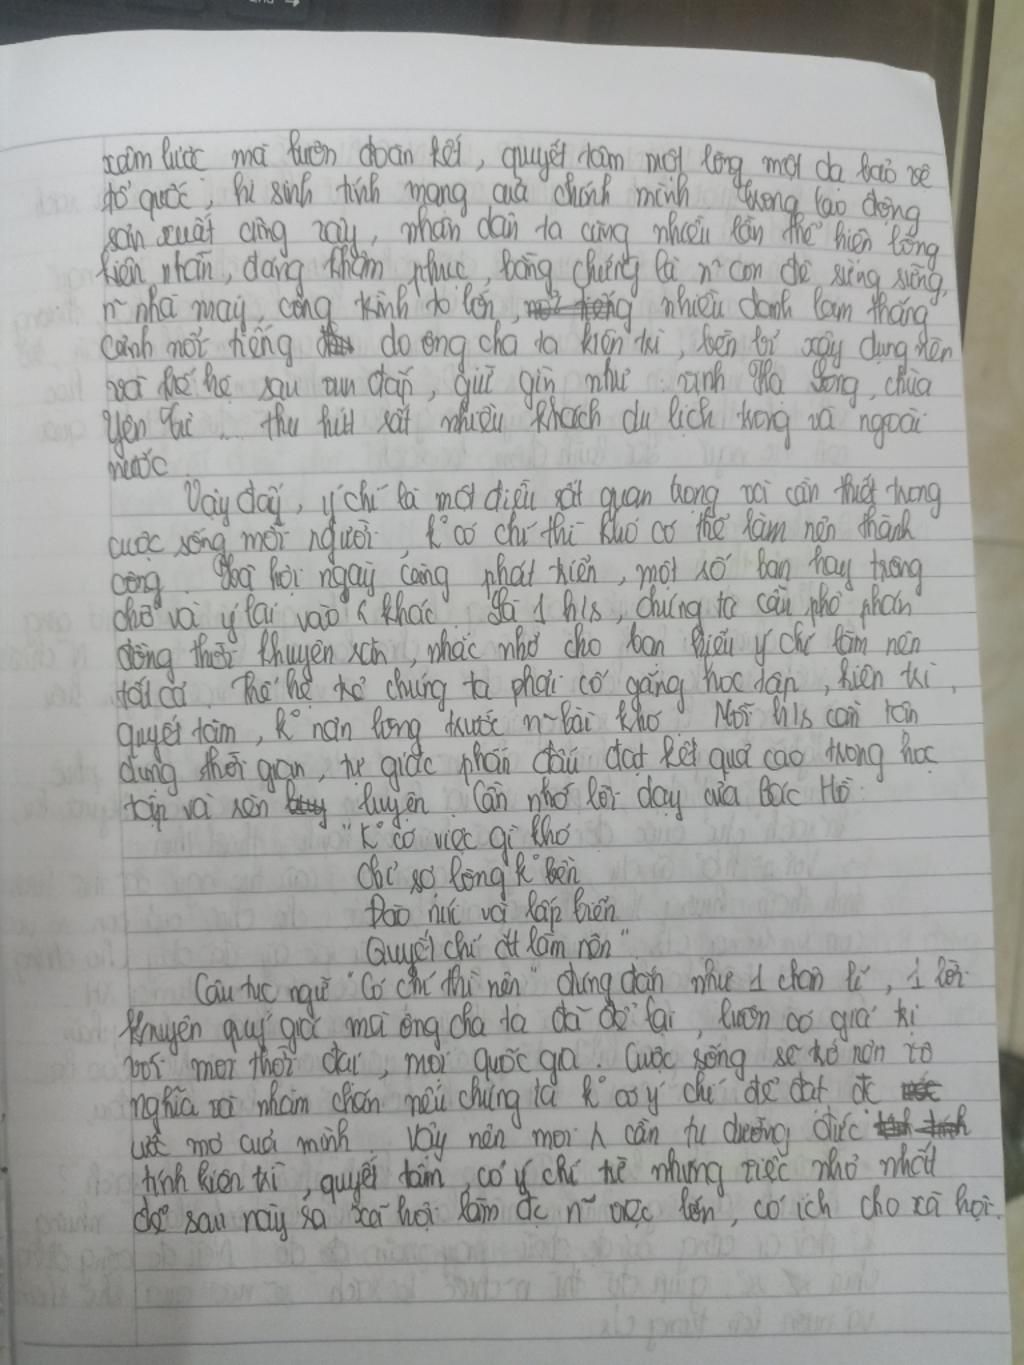 xâm lược mà luôn đoàn kết, quyết tâm một lòng một dạ bảo vệ
tổ quốc, hi sinh tính mạng của chính mình trong lao động
sản xuất cũng vậy, nhân dân ta cũng nhiều lần thể hiện lòng
kiên nhẫn, đáng khâm phục, bằng chứng là n~ con đê sừng sững,
n~ nhà máy, công trình to lớn, nhiều danh lam thắng
cảnh nổi tiếng do ông cha ta kiên trì, bền bỉ xây dựng nên
và thế hệ sau vun đắp, giữ gìn như vịnh Hạ Long, chùa
Yên Tử ... thu hút rất nhiều khách du lịch trong và ngoài
nước.
Vậy đấy, ý chí là một điều rất quan trọng và cần thiết trong
cuộc sống mỗi người, k° có chí thì khó có thể làm nên thành
công. Xã hội ngày càng phát triển, một số bạn hay trông
chờ và ỷ lại vào khác. Là 1 h/s, chúng ta cần phê phán
đồng thời khuyên răn, nhắc nhở cho bạn hiểu ý chí làm nên
tất cả. Thế hệ trẻ chúng ta phải cố gắng học tập, kiên trì,
quyết tâm, k° nản lòng trước n~ bài khó. Mỗi h/s cần tận
dụng thời gian, tự giác phấn đấu đạt kết quả cao trong học
tập và rèn luyện. Cần nhớ lời dạy của Bác Hồ:
"K° có việc gì khó
Chỉ sợ lòng k° bền
Đào núi và lấp biển
Quyết chí ắt làm nên"
Câu tục ngữ "Có chí thì nên" đúng đắn như 1 chân lí, 1 lời
khuyên quý giá mà ông cha ta đã để lại, luôn có giá trị
với mọi thời đại, mọi quốc gia. Cuộc sống sẽ trở nên vô
nghĩa và nhàm chán nếu chúng ta k có ý chí để đạt đc
ước mơ của mình. Vậy nên mọi cần tu dưỡng đức
tính kiên trì, quyết tâm, có ý chí từ những việc nhỏ nhất
để sau này ra xã hội làm đc n~ việc lớn, có ích cho xã hội.